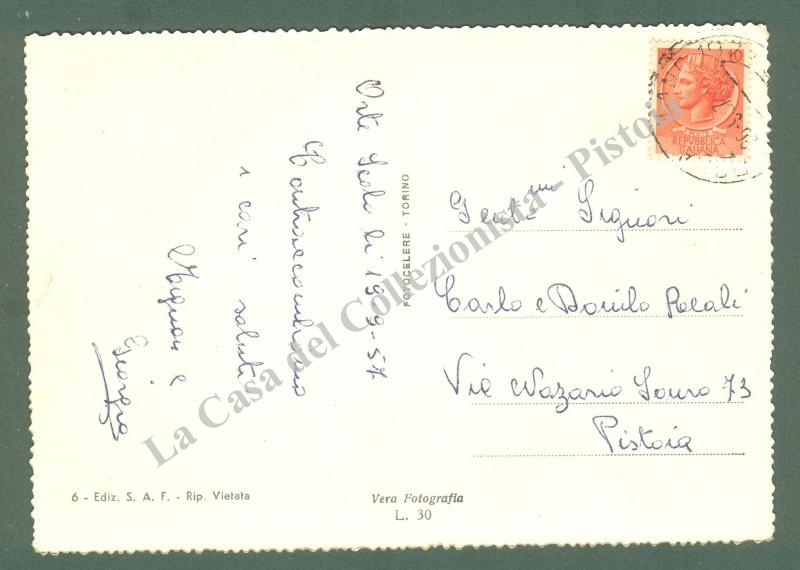 Orta Scalo li 19-9-57
Contraccambiano
i cari saluti
e
Giorgio
Gent.mi Signori
Carlo e Danilo
Via Nazario Sauro 73
Pistoia
FOTOCELERE - TORINO
10
REPVBBLICA
ITALIANA
6 - Ediz. S. A. F. - Rip. Vietata
Vera Fotografia
L. 30
La Casa del Collezionista - Pistoia